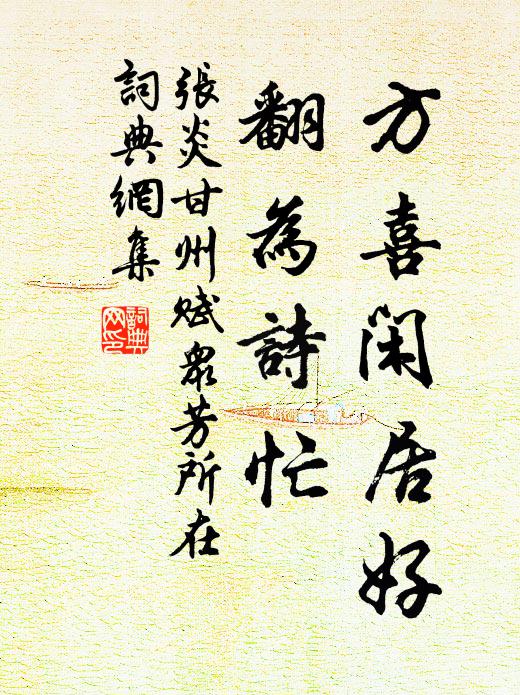 方喜閑居好
翻為詩忙
張炎甘州賦眾芳所在
詞典網集
詞典
网印